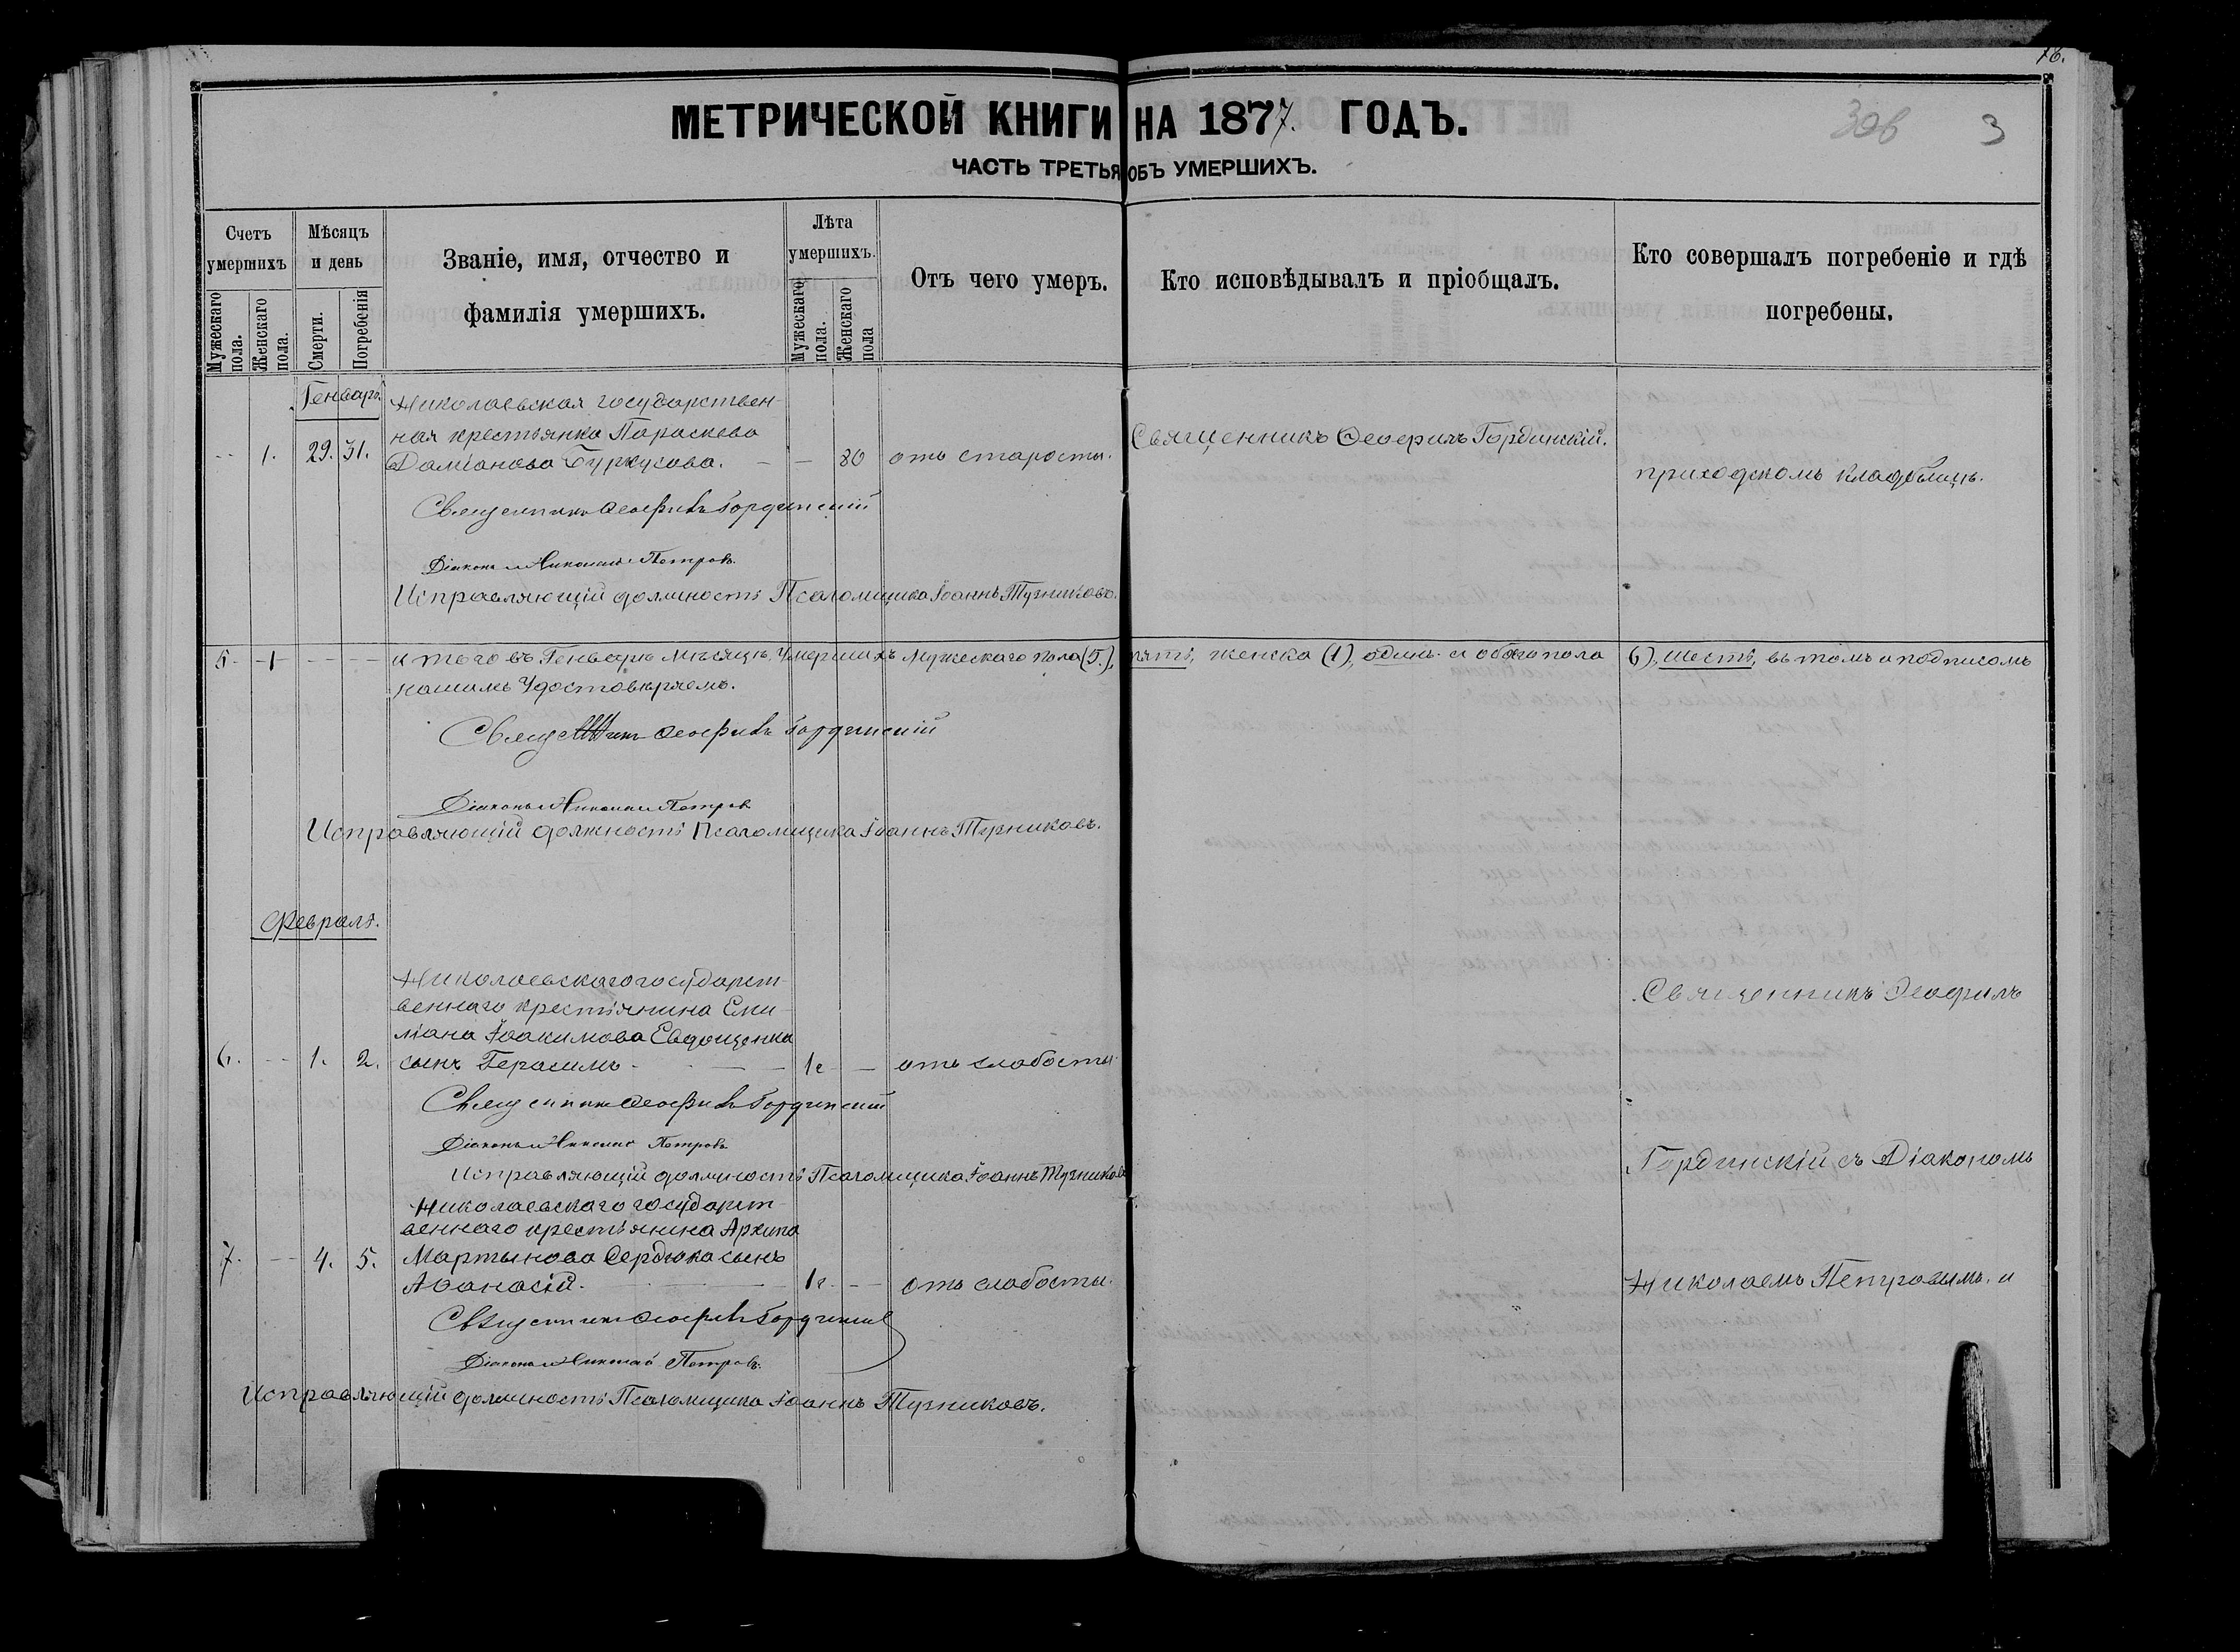 76.
МЕТРИЧЕСКОЙ КНИГИ НА 1877. ГОДЪ.
3
ЧАСТЬ ТРЕТЬЯ ОБЪ УМЕРШИХЪ.
Счетъ умершихъ
Мужескаго пола.
Женскаго пола.
Мѣсяцъ и день
Смерти.
Погребенія
Званіе, имя, отчество и
фамилія умершихъ.
Лѣта умершихъ.
Мужескаго пола.
Женскаго пола
Отъ чего умеръ.
Кто исповѣдывалъ и пріобщалъ.
Кто совершалъ погребеніе и гдѣ
погребены.
Генварь.
Николаевская государствен-
ная крестьянка Параскева
1. 29. 31. Даміанова. — — 80 отъ старости.
Священникъ Ѳеофилъ Гординскій.
приходскомъ кладбищѣ.
Священникъ Ѳеофилъ Гординскій
Діаконъ Николай Петровъ.
Исправляющій должность Псаломщика Іоаннъ Тузниковъ.
5 - 1 - - - - итого въ Генварѣ мѣсяцѣ умершихъ мужескаго пола (5.), пять, женска (1), одинъ и обоего пола 6), шесть, въ томъ и подписомъ
нашимъ удостовѣряемъ.
Священникъ Ѳеофилъ Гординскій
Діаконъ Николай Петровъ
Исправляющій должность Псаломщика Іоаннъ Тузниковъ.
Февраль.
Николаевскаго государст-
веннаго крестьянина Еми-
ліана Іоакимова Евдощенка
6. - - 1. 2. сынъ Герасимъ - — 1г - — отъ слабости.
Священникъ Ѳеофилъ
Священникъ Ѳеофилъ Гординскій
Діаконъ Николай Петровъ
Исправляющій должность Псаломщика Іоаннъ Тузниковъ
Гординскій съ Діакономъ
Николаевскаго государст-
веннаго крестьянина Архипа
7. - - 4. 5. Мартынова Сердюка сынъ
Аѳанасій. — 1г. - — отъ слабости.
Николаемъ Петровымъ. и
Священникъ Ѳеофилъ Гординскій
Діаконъ Николай Петровъ.
Исправляющій должность Псаломщика Іоаннъ Тузниковъ.